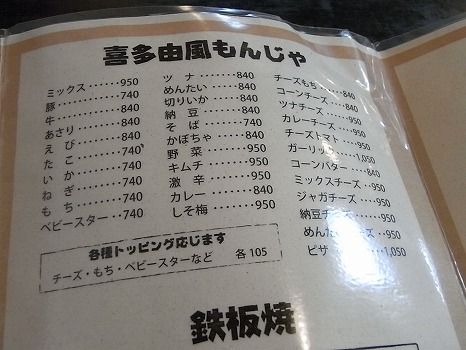 喜多由風もんじゃ
ミックス‥‥‥950
豚‥‥‥‥740
牛‥‥‥‥840
あさり‥‥‥840
えび‥‥‥840
たこ‥‥‥740
いか‥‥‥740
ねぎ‥‥‥740
もち‥‥‥740
ベビースター‥740
ツナ‥‥‥840
めんたい‥‥‥840
切りいか‥‥‥840
納豆‥‥‥840
そば‥‥‥740
かぼちゃ‥‥‥840
野菜‥‥‥950
キムチ‥‥‥950
激辛‥‥‥950
カレー‥‥‥840
しそ梅‥‥‥950
チーズもち‥‥840
コーンチーズ‥840
ツナチーズ‥‥950
カレーチーズ‥950
チーズトマト‥950
ガーリック‥1,050
コーンバター‥840
ミックスチーズ‥950
ジャガチーズ‥950
納豆チ 950
めんた ーズ‥950
ピザ ‥1,050
各種トッピング応じます
チーズ・もち・ベビースターなど 各105
鉄板焼